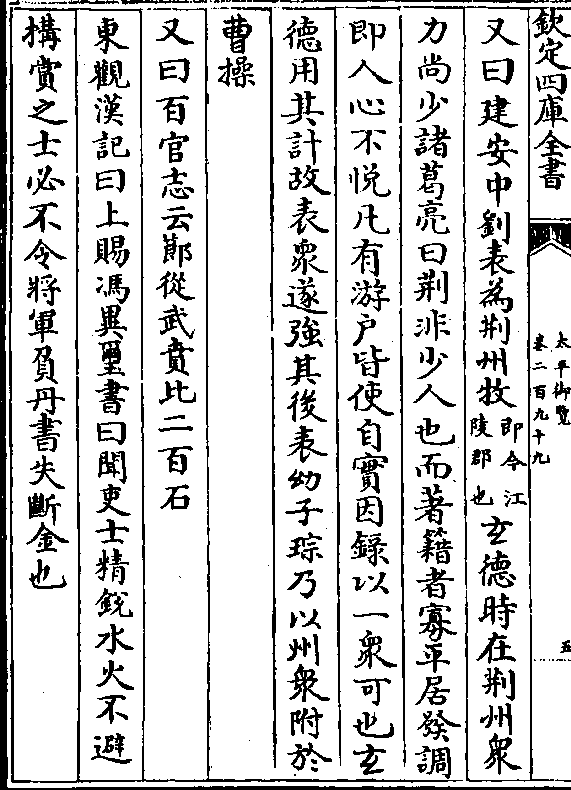 欽定四庫全書
太平御覽
卷二百九十九
五
又曰建安中劉表為荆州牧即今江陵郡也玄德時在荆州衆
力尚少諸葛亮曰荆非少人也而著籍者寡平居發調
即人心不悦凡有游户皆使自實因録以一衆可也玄
德用其計故表衆遂強其後表幼子琮乃以州衆附於
曹操
又曰百官志云郎從武賁比二百石
東觀漢記曰上賜馮異璽書曰聞吏士精鋭水火不避
搆賞之士必不令將軍負丹書失斷金也